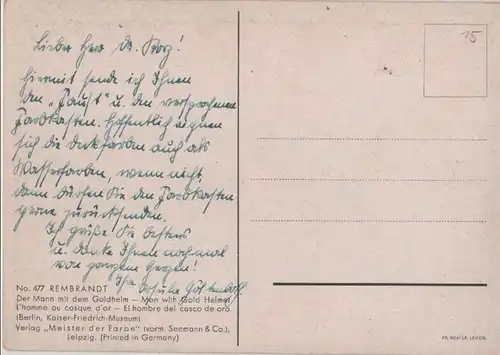 Lieber Herr Dr.
hiermit sende ich Ihnen
den „Faust" u. den versprochenen
Farbkasten. Hoffentlich eignen
sich die Deckfarben auch als
Wasserfarben, wenn nicht,
dann dürfen Sie den Farbkasten
gerne zurücksenden.
Ich grüße Sie bestens
u. danke Ihnen nochmal
von ganzem Herzen!
Ihre Ursula
No. 477 REMBRANDT
Der Mann mit dem Goldhelm — Man with Gold Helmet
L'homme au casque d'or — El hombre del casco de oro
(Berlin, Kaiser-Friedrich-Museum)
Verlag „Meister der Farbe" (vorm. Seemann & Co.),
Leipzig. (Printed in Germany)
15
LEIPZIG